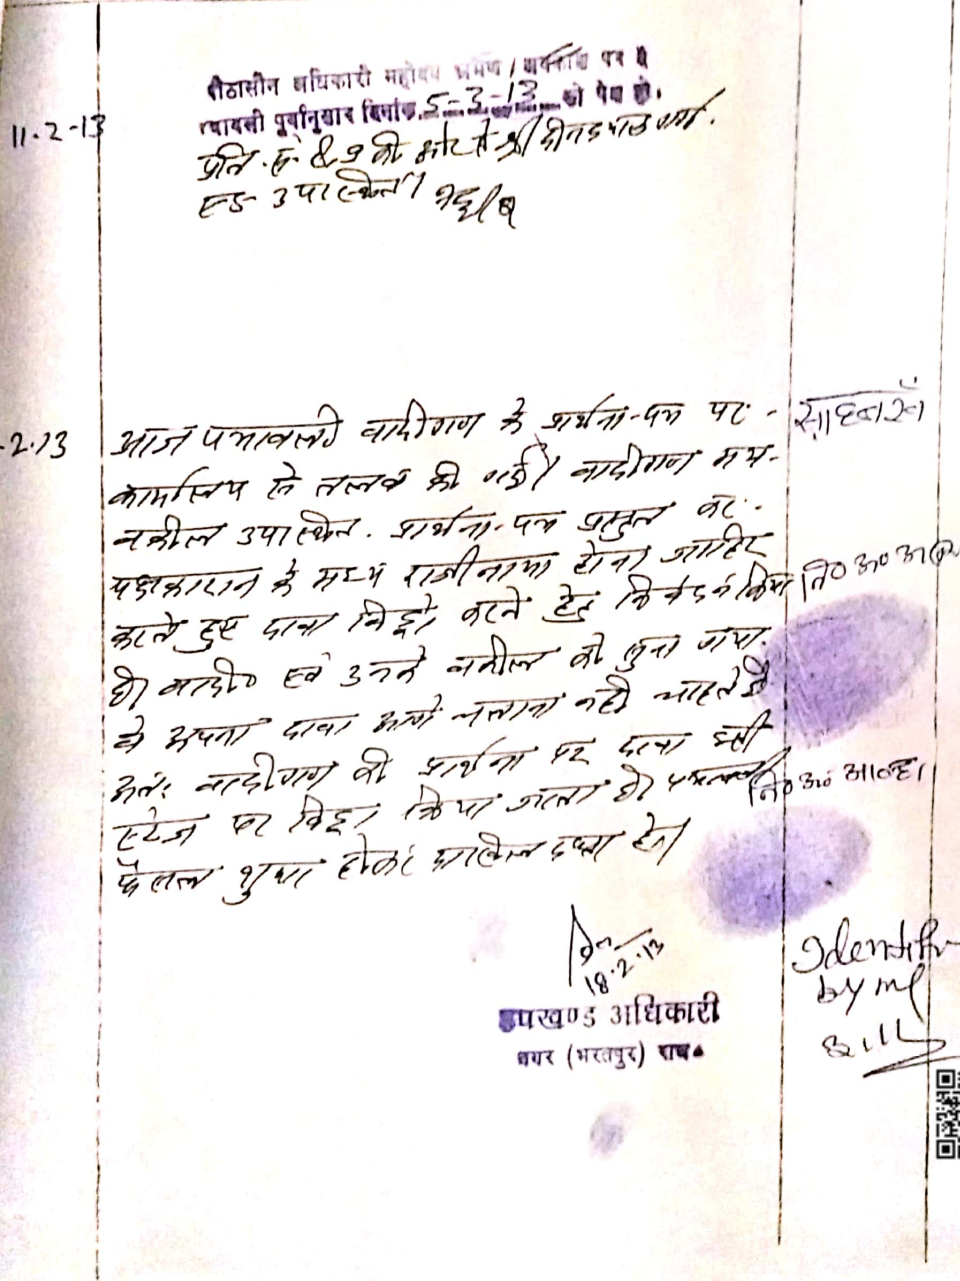 पीठासीन अधिकारी महोदय भ्रमण / अवकाश पर है
11.2-13
पत्रावली पूर्वानुसार दिनांक 5-3-13 को पेश हो।
प्रति. सं. 8, 9 की ओर से श्री दीनदयाल शर्मा.
एड. उपस्थित।
.2.13
आज पत्रावली वादीगण के प्रार्थना-पत्र पर -
साहबखाँ
कार्यालय से तलब की गई। वादीगण मय-
वकील उपस्थित. प्रार्थना-पत्र प्रस्तुत कर.
पक्षकारान के मध्य राजीनामा होना जाहिर
नि० अं०
करते हुए दावा विड्रो करने हेतु निवेदन किया
है। वादी० एवं उनके वकील को सुना गया.
वे अपना दावा आगे चलाना नहीं चाहते है
अतः वादीगण की प्रार्थना पर दावा इसी
स्टेज पर विड्रा किया जाता है। पत्रावली
नि० अं०
फैसल शुमार होकर दाखिल दफ्तर हो।
18.2.13
उपखण्ड अधिकारी
नगर (भरतपुर) राज०
Identify
by me